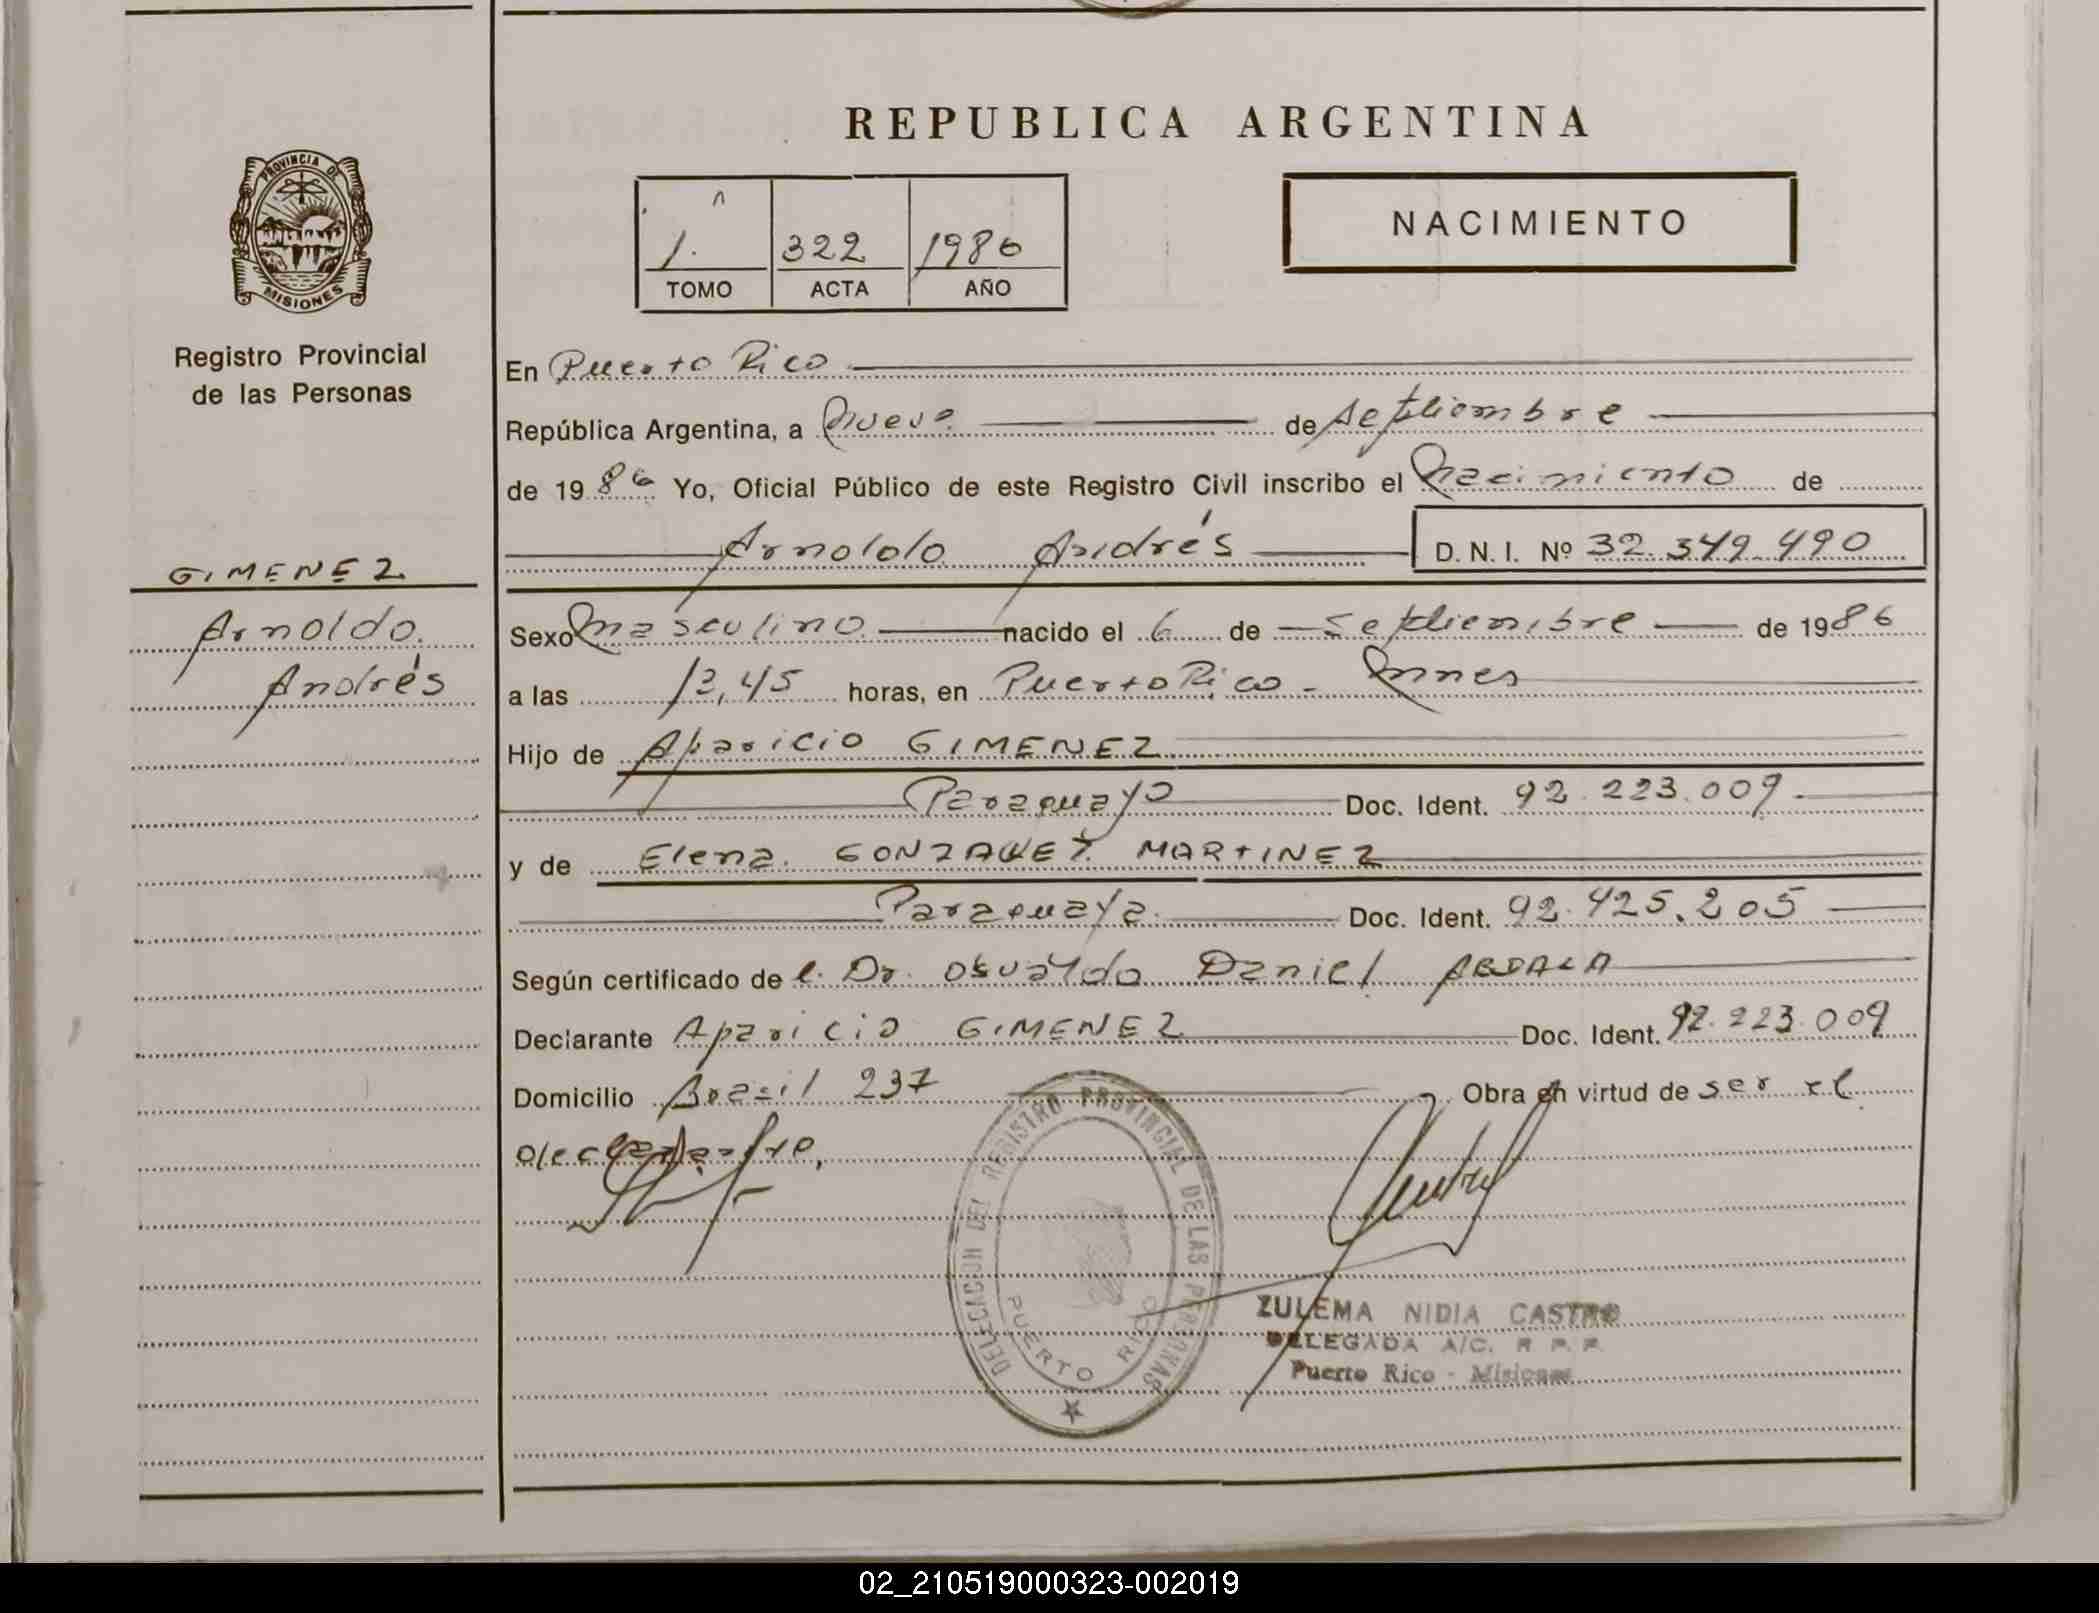 REPUBLICA ARGENTINA
PROVINCIA DE
MISIONES
Registro Provincial
de las Personas
1. 322 1986
TOMO ACTA AÑO
NACIMIENTO
En Puerto Rico
República Argentina, a Nueve de Septiembre
de 1986 Yo, Oficial Público de este Registro Civil inscribo el Nacimiento de
Arnoldo Andrés D. N. I. Nº 32.349.490
GIMENEZ
Arnoldo
Andrés
Sexo Masculino nacido el 6 de Septiembre de 1986
a las 12,45 horas, en Puerto Rico - Mnes
Hijo de Aparicio GIMENEZ
Paraguayo Doc. Ident. 92.223.009
y de Elena GONZALEZ MARTINEZ
Paraguaya Doc. Ident. 92.425.205
Según certificado de l. Dr. Osvaldo Daniel ABDALA
Declarante Aparicio GIMENEZ Doc. Ident. 92.223.009
Domicilio Brasil 237 Obra en virtud de ser el
declarante,
DELEGACION DEL REGISTRO PROVINCIAL DE LAS PERSONAS
PUERTO RICO
ZULEMA NIDIA CASTRO
DELEGADA A/C. R. P. P.
Puerto Rico - Misiones
02_210519000323-002019